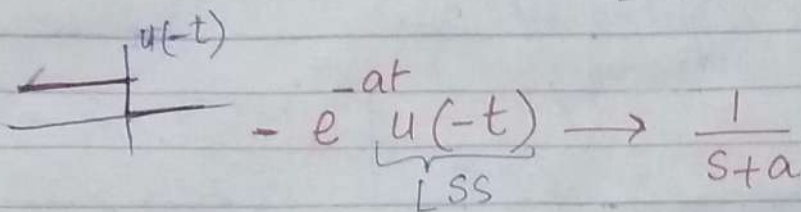 u(-t)
- e^{-at} u(-t) → \frac{1}{s+a}
LSS